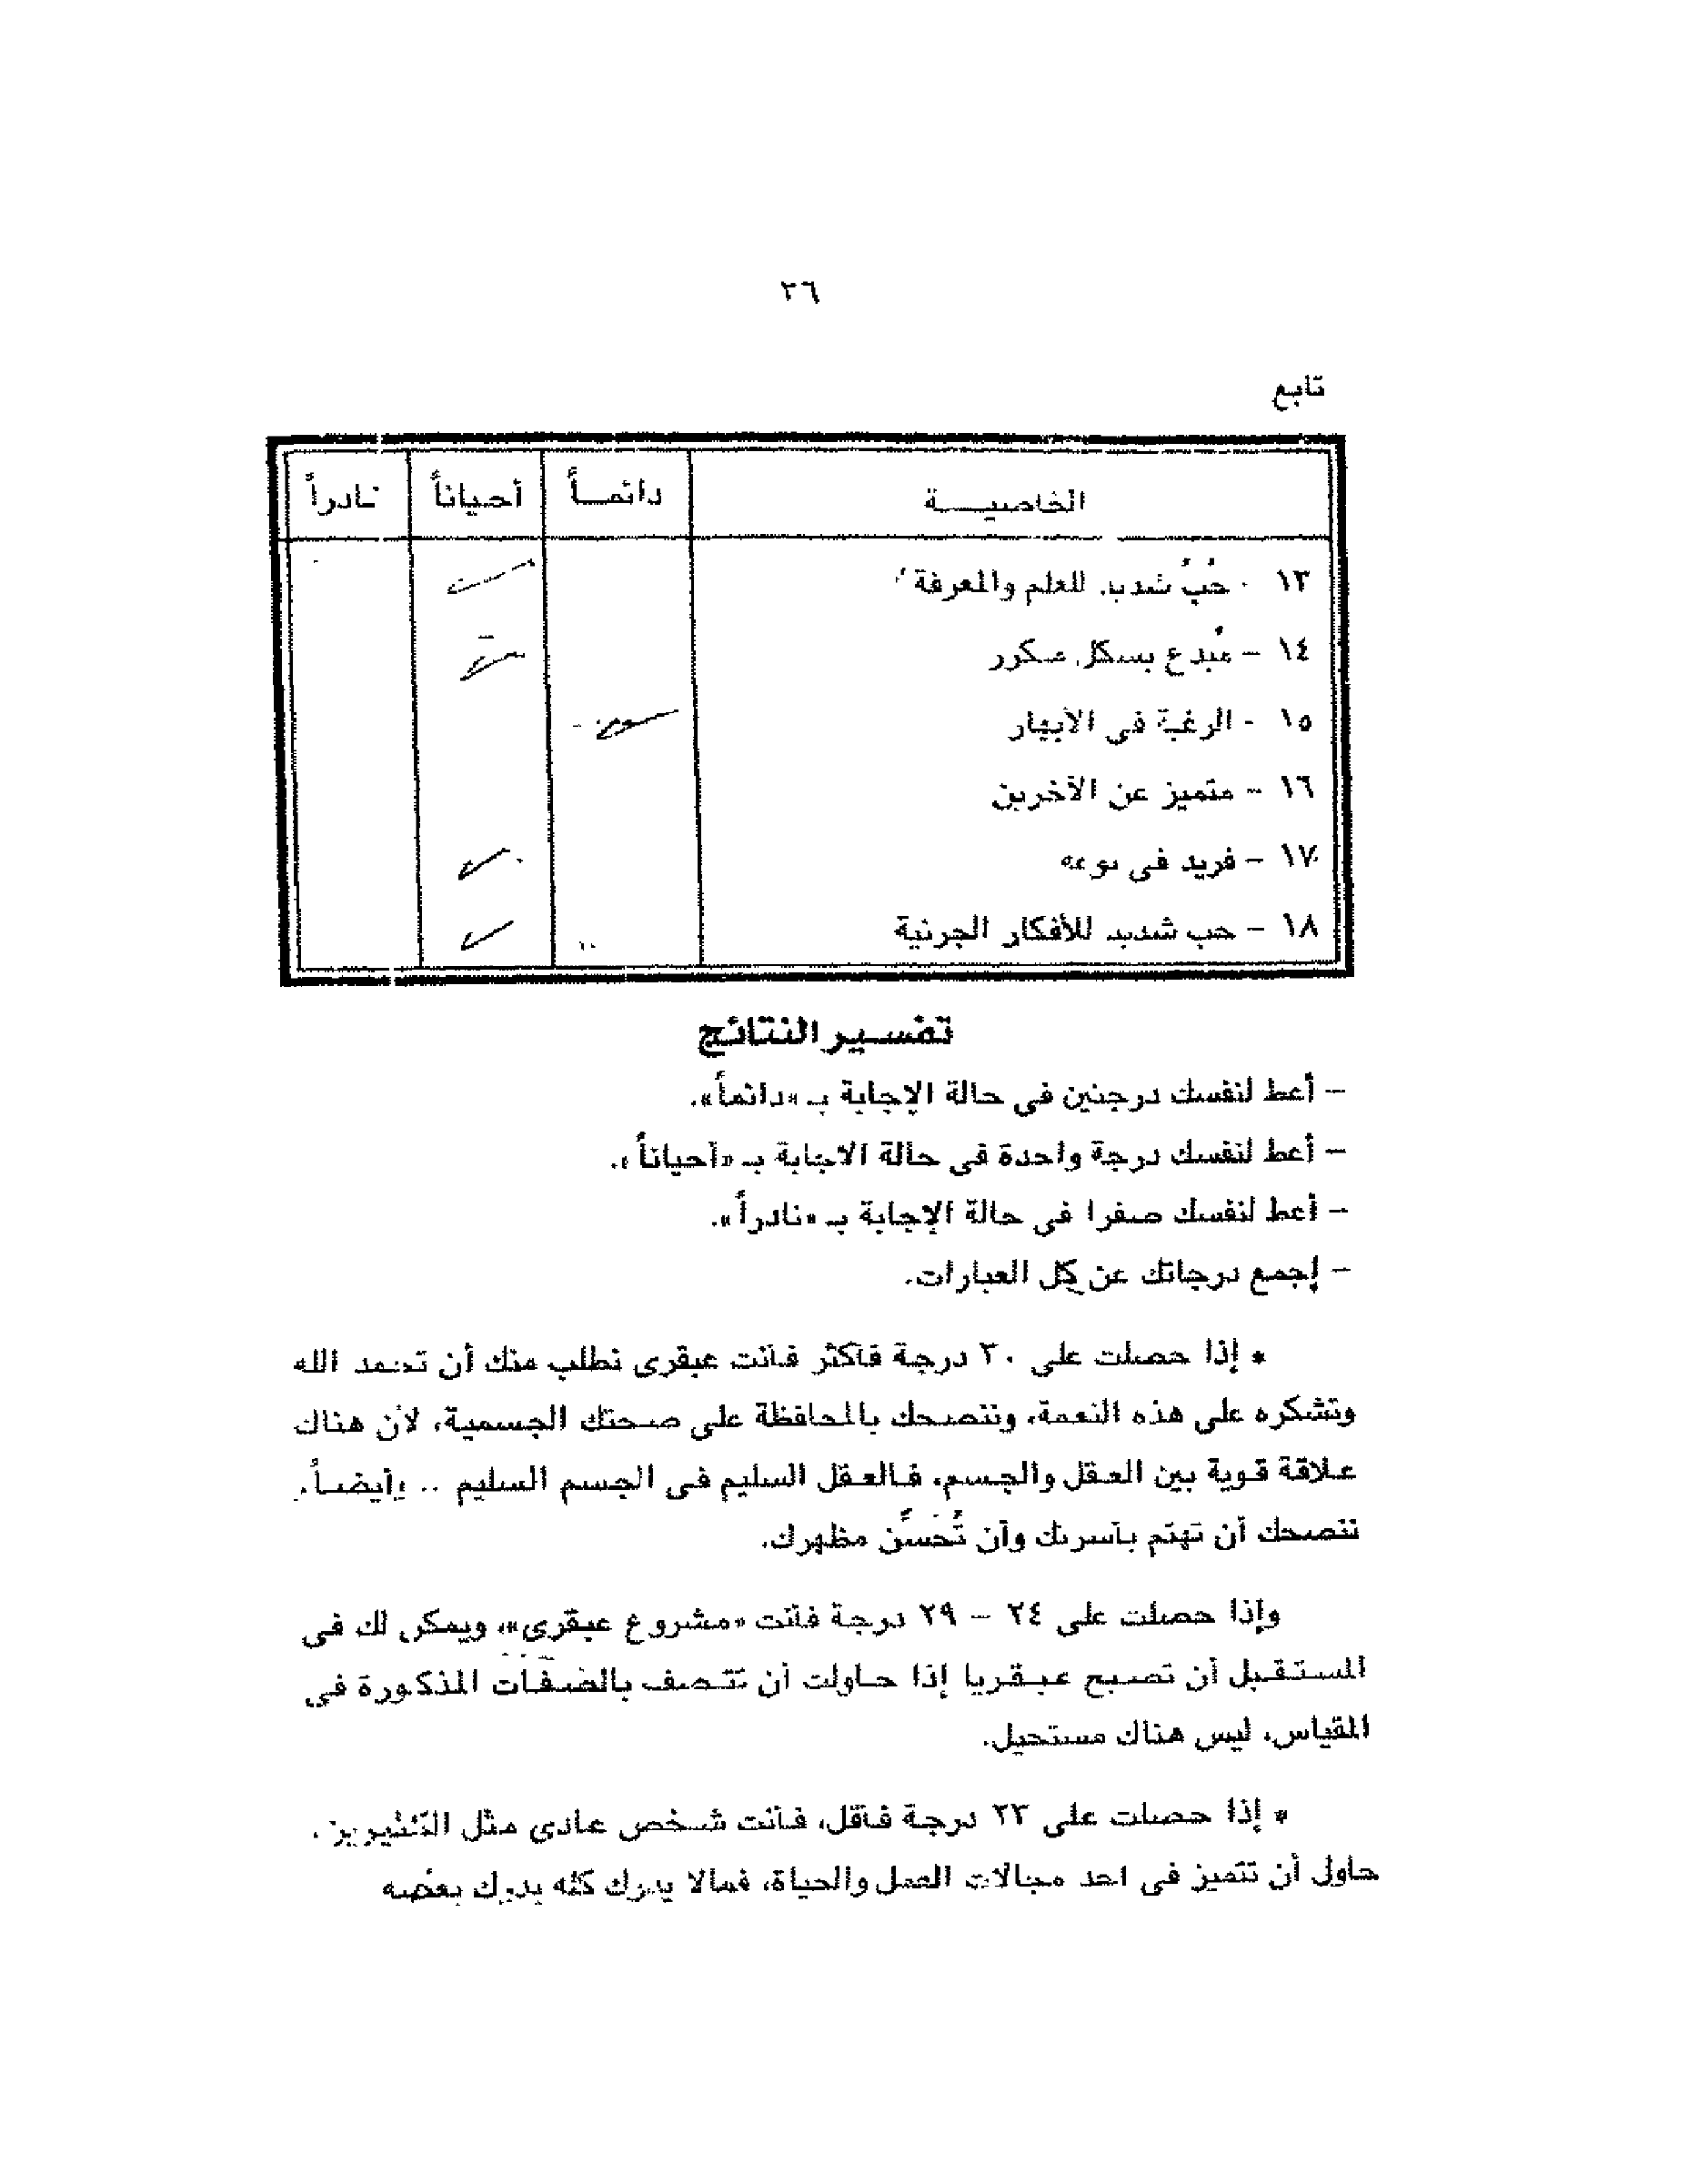 ٣٦
تابع
الخاصيـــة دائمـــاً أحياناً نـادراً
١٣ - حُبُ شديد للعلم والمعرفة
١٤ - مُبدع بشكل متكرر
١٥ - الرغبة فى الأبهار
١٦ - متميز عن الآخرين
١٧ - فريد فى نوعه
١٨ - حب شديد للأفكار الجزئية
تفسير النتائج
- أعط لنفسك درجتين فى حالة الإجابة بـ «دائماً».
- أعط لنفسك درجة واحدة فى حالة الاجابة بـ «أحياناً».
- أعط لنفسك صفرا فى حالة الإجابة بـ «نادراً».
- إجمع درجاتك عن كل العبارات.
* إذا حصلت على ٣٠ درجة فأكثر فأنت عبقرى نطلب منك أن تحمد الله
وتشكره على هذه النعمة، وننصحك بالمحافظة على صحتك الجسمية، لأن هناك
علاقة قوية بين العقل والجسم، فالعقل السليم فى الجسم السليم .. وأيضاً،
ننصحك أن تهتم بأسرتك وأن تُحَسِّن مظهرك.
وإذا حصلت على ٢٤ - ٢٩ درجة فأنت «مشروع عبقرى»، ويمكن لك فى
المستقبل أن تصبح عبقريا إذا حاولت أن تتصف بالصفات المذكورة فى
المقياس، ليس هناك مستحيل.
* إذا حصلت على ٢٣ درجة فأقل، فأنت شخص عادى مثل الكثيرين.
حاول أن تتميز فى احد مجالات العمل والحياة، فمالا يدرك كله يدرك بعضه